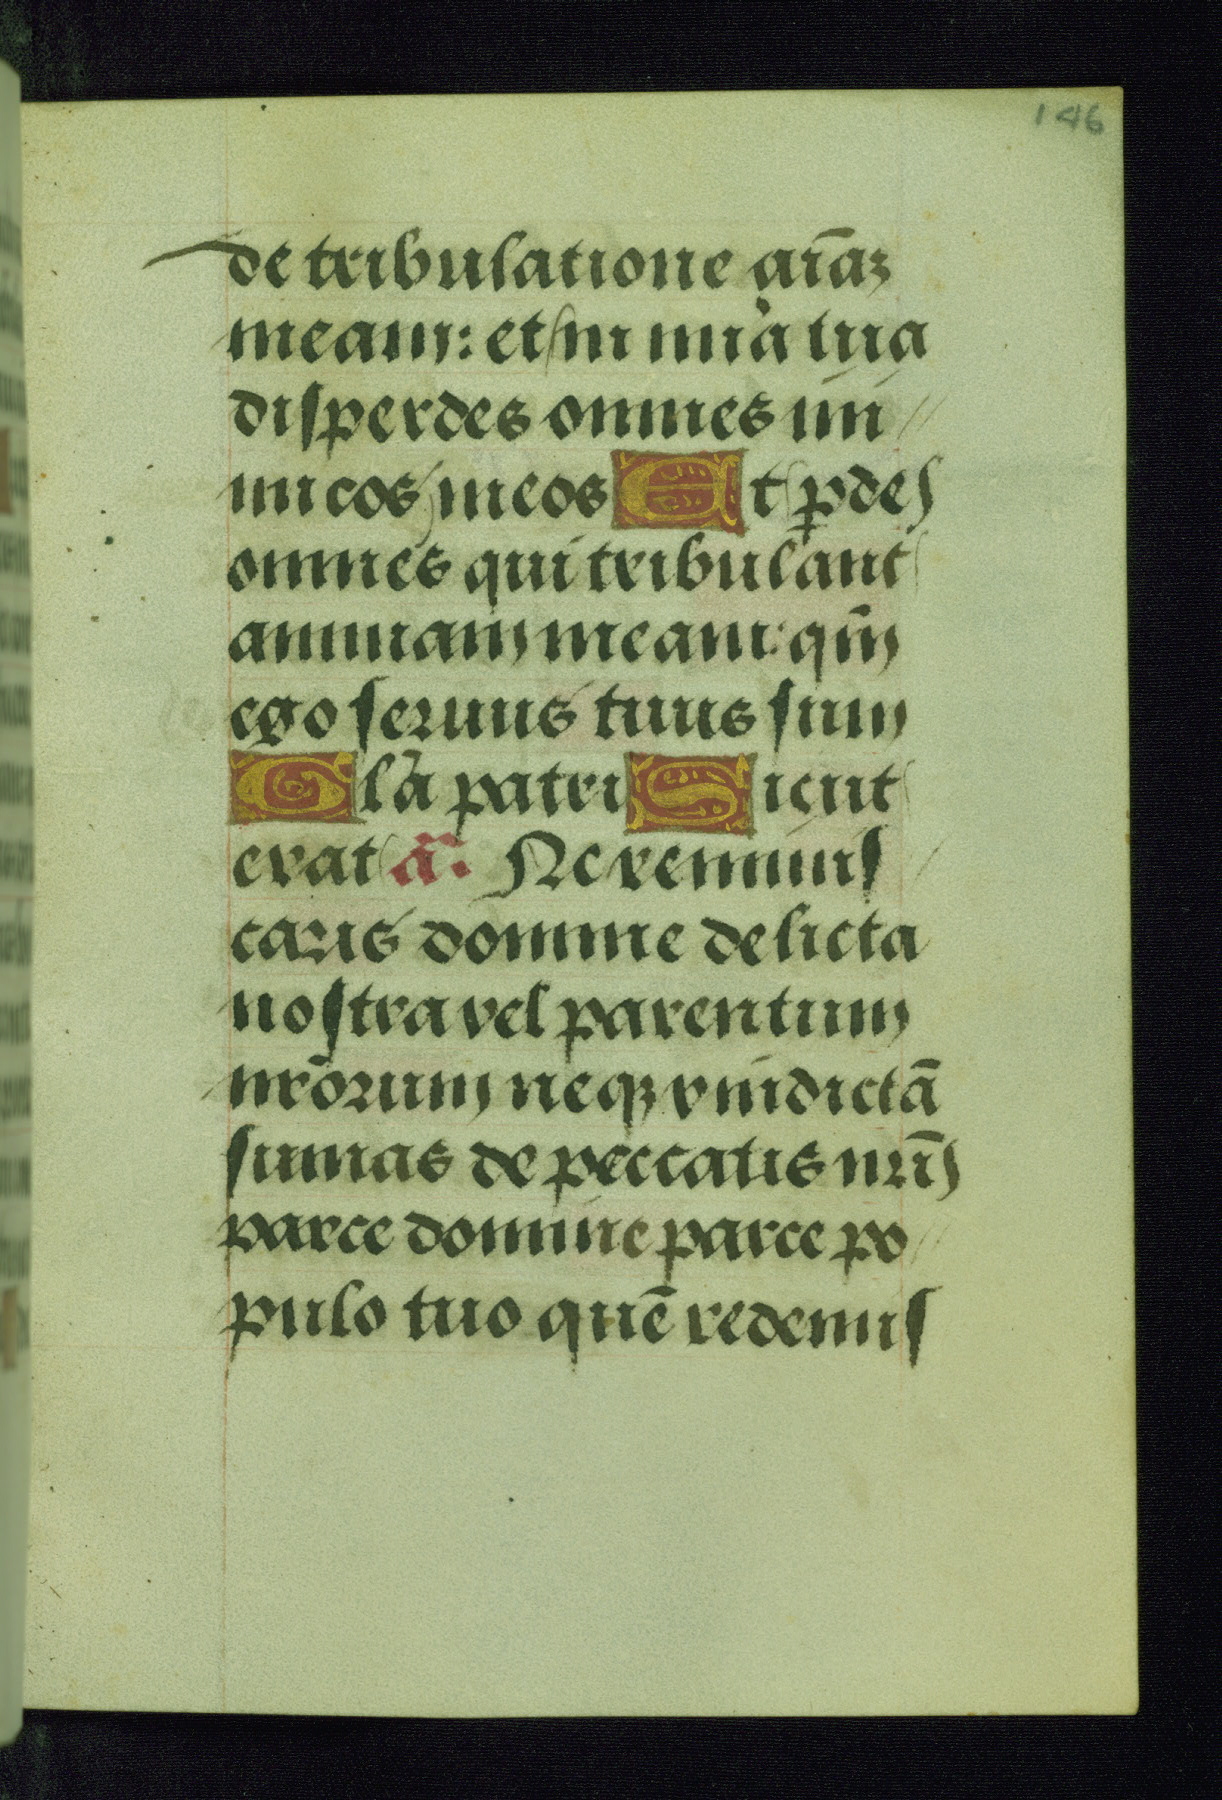 146
de tribulatione aīaꝫ
meam: et in mīa tua
disperdes omnes ini
micos meos Et ꝑdes
omnes qui tribulant
animam meam: qm̄
ego seruus tuus sum
Glā patri Sicut
erat ā. Ne reminis
caris domine delicta
nostra vel parentum
nr̄orum neqꝫ vindictā
sumas de peccatis nr̄is
parce domine parce po
pulo tuo quē redemis